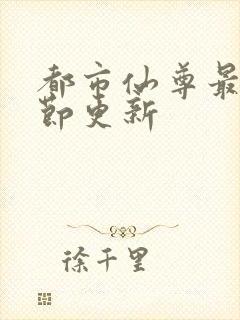 都市仙尊最
节更新
徐千里